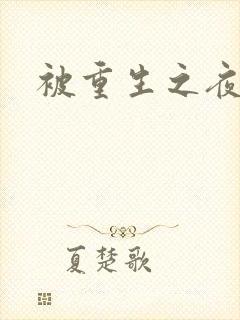 被重生之夜
夏楚歌